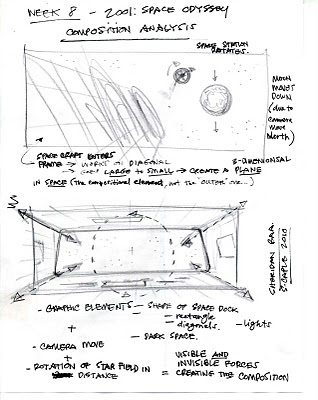 WEEK 8 - 2001: SPACE ODYSSEY
COMPOSITION ANALYSIS
SPACE STATION
ROTATES.
MOON
MOVES
DOWN
(due to
camera
move
SPACE CRAFT ENTERS
FRAME → WORKS ON DIAGONAL
→ LARGE TO SMALL → CREATE A PLANE
3-DIMENIONSAL
IN SPACE (The compositional element, not the "OUTER" one...)
2010
- GRAPHIC ELEMENTS - SHAPE OF SPACE DOCK
- rectangle
- diagonals.
- Lights
+
- DARK SPACE.
- CAMERA MOVE
+
- ROTATION OF STAR FIELD IN
DISTANCE
VISIBLE AND
INVISIBLE FORCES
= CREATING THE COMPOSITION